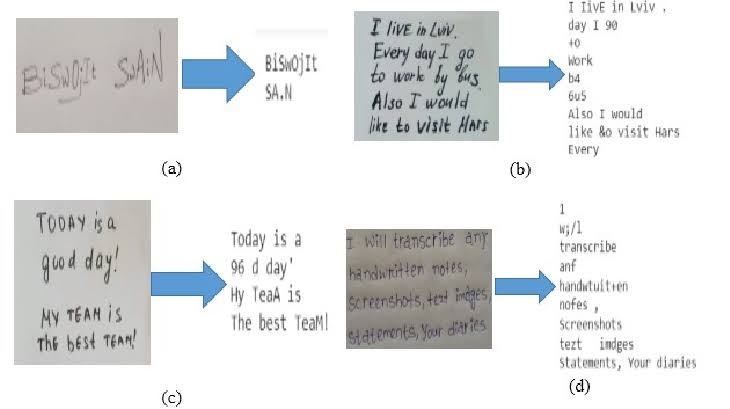 BiSwOjIt SwAiN
BiSwOjIt
SA.N
(a)
I live in Lviv.
Every day I go
to work by bus.
Also I would
like to visit HARS
I IivE in Lviv .
day I 90
+o
Work
b4
6u5
Also I would
like &o visit Hars
Every
(b)
TODAY is a
good day!
MY TEAM is
The best TEAM!
Today is a
96 d day'
Hy TeaA is
The best TeaM!
(c)
I will transcribe any
handwritten notes,
Screenshots, text images,
statements, Your diaries
l
w;/l
transcribe
anf
handwtuit+en
nofes ,
Screenshots
tezt imdges
Statements, Your diaries
(d)